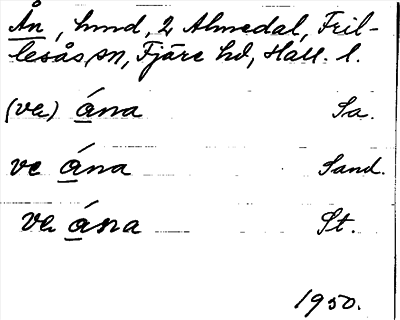 Ån, hmd, 2 Almedal, Fril-
lesås sn, Fjäre hd, Hall. l.
(va) ána Sa.
ve ána Sand.
va ána St.
1950.